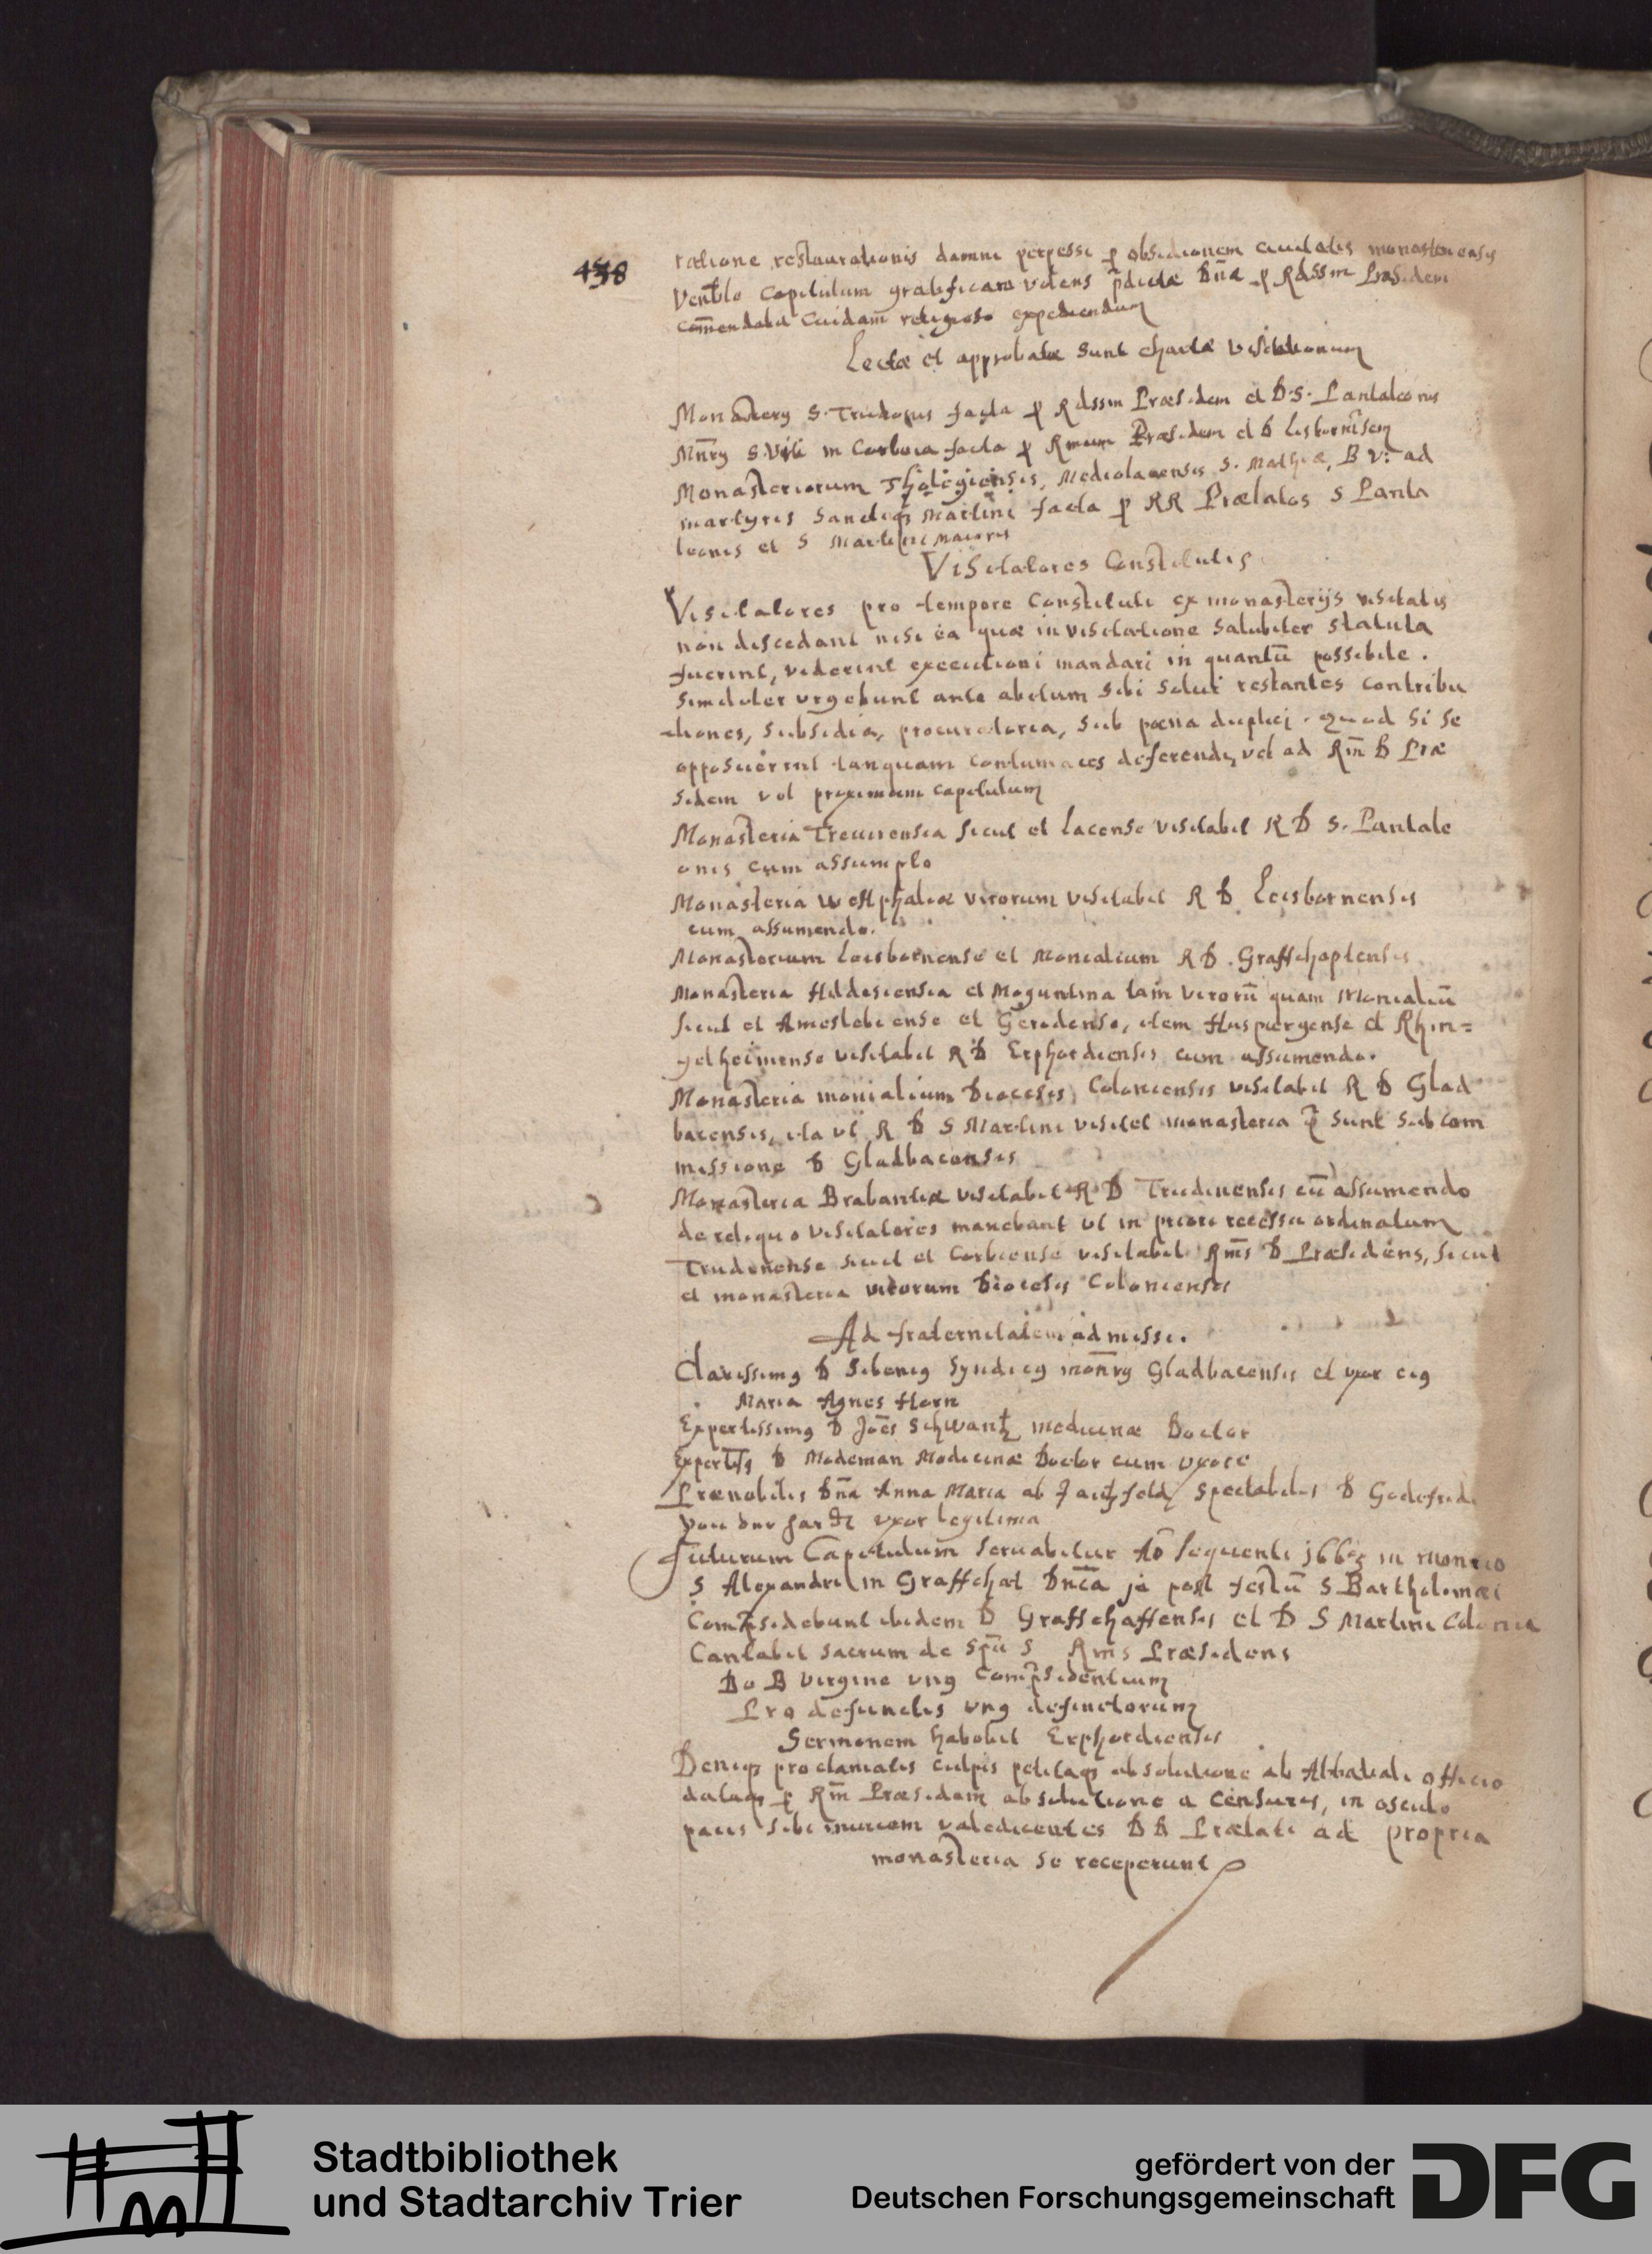 438
ratione restaurationis damni perpessi p obsidionem ciuitatis monasteriensis
Venble Capitulum gratificare volens pdictæ Dnæ p Rdssm Præsidem
com̄endata cuidam religioso expediendum
Lectæ et approbatæ sunt chartæ visitationum
Monastery S. Trudonis facta p Rdssm Præsidem et D. S. Pantaleonis
Mnry S. Viti in Corbeia facta p Rmum Præsidem et D Lisbornesem
Monasteriorum Tholegiensis, Mediolacensis S. Mathiæ, B V: ad
martyres Sanctiq Martini facta p RR Prælatos S Panta
leonis et S Martini Maioris
Visitatores Constitutis
Visitatores pro tempore Constituti ex monasterijs visitatis
non discedant nisi ea quæ in visitatione salubiter statuta
fuerint, viderint executioni mandari in quantū possibile.
Similiter vrgebunt ante abitum sibi solui restantes contribu
tiones, subsidia, procuratoria, sub pœna dupli. quod si se
opposuerint tanquam contumaces deferendj vel ad Rm̄ D Præ
sidem vel proximum capitulum
Monasteria Treuirensia sicut et Lacense visitabit R D S. Pantale
onis cum assumpto
Monasteria westphaliæ virorum visitabit R D Leisbornensis
cum assumendo.
Monasterium Leisbornense et Monialium R D. Graffschaptensis
Monasteria Hildesiensia et Moguntina tam virorū quam Monialiū
sicut et Ameslebiense et Gerodense, item Huspurgense et Rhin=
gelheimense visitabit R D Erphordiensis cum assumendo.
Monasteria monialium Diocesis Coloniensis visitabit R D Glad
bacensis, ita vt R D S Martini visitet monasteria q̃ sunt sub com
missione D Gladbacensis
Monasteria Brabantiæ visitabit R D Trudinensis cū assumendo
de reliquo visitatores manebunt vt in priori recessu ordinatum
Trudonense sicut et Corbiense visitabit Rms D Præsidens, sicut
et monasteria virorum Diocesis Coloniensis
Ad fraternitatem admissi.
Clarissimg D Sibenig Syndicg monry Gladbacensis et vxor eig
Maria Agnes Horn
Expertissimg D Joēs Schwantz medicinæ Doctor
Expertissg D Modeman Medicinæ Doctor cum vxore
Prænobilis Dn̄a Anna Maria ab spectabilis D Godefridi
von der vxor legitima
Futurum Capitulum seruabitur Aō sequenti in monrio
S Alexandri in Graffchat Dn̄ca ja post festū S Bartholomæi
Comp̄sidebunt ibidem D Graffschaffensis et D S Martini Coloniæ
Cantabit sacrum de Spū S Rms Præsidens
De B Virgine vng comp̄sidentium
Pro defunctis vng definitorum
Sermonem habebit Erphordiensis
Deniq proclamatis culpis petitaq absolutione ab Abbatiali officio
dataq p Rm̄ Præsidem absolutione a censuris, in osculo
pacis sibi inuicem valedicentes D D Prælati ad propria
monasteria se receperunt
Stadtbibliothek
und Stadtarchiv Trier
gefördert von der
Deutschen Forschungsgemeinschaft
DFG